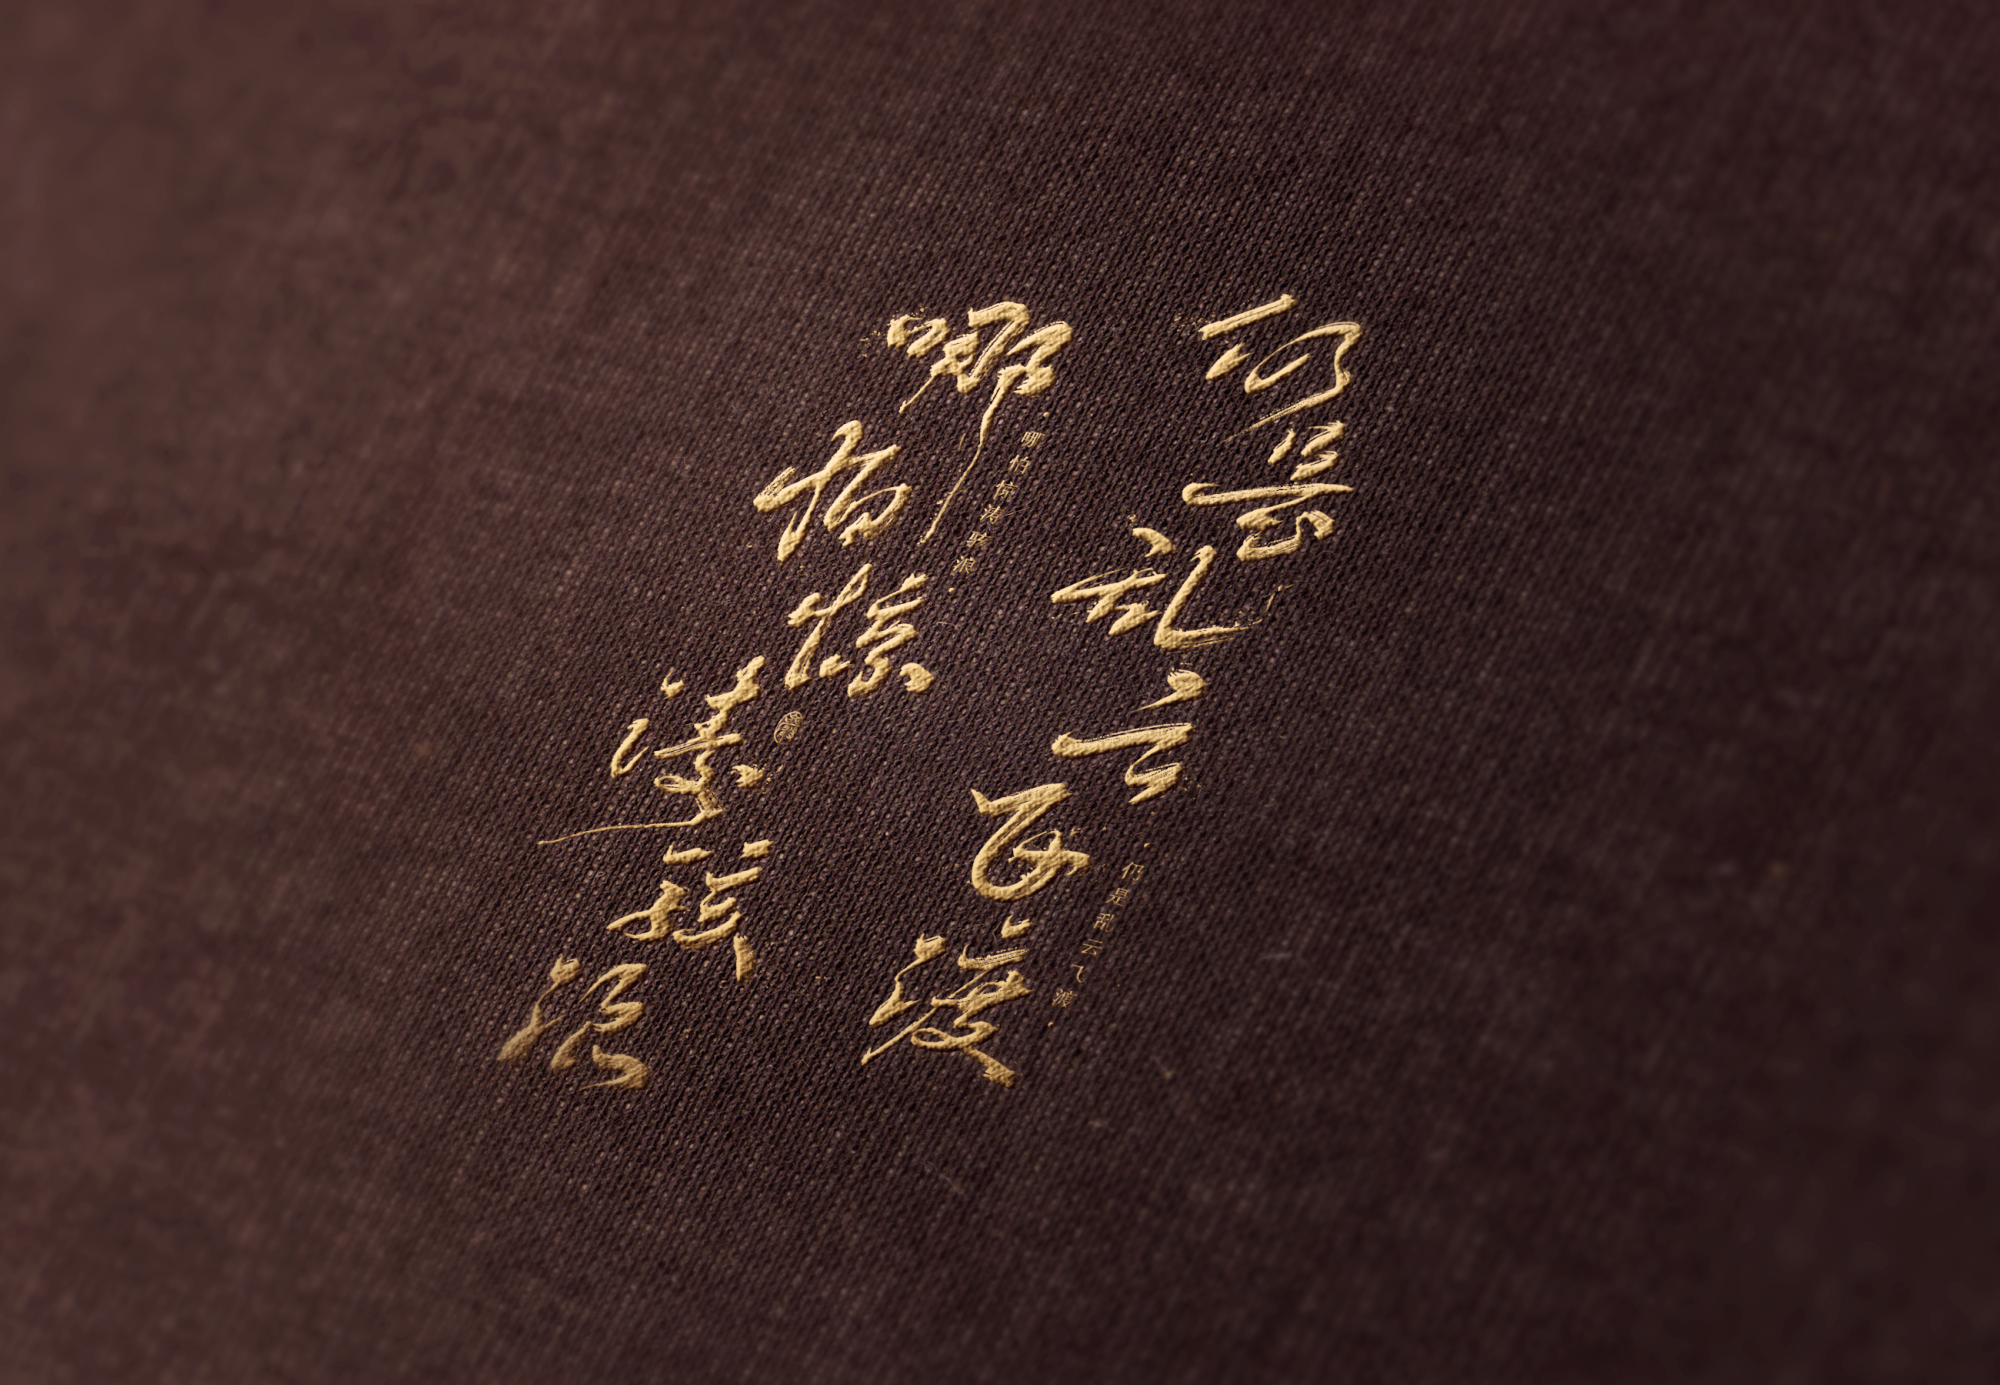 仍是乱云飞渡
仍是乱云飞渡
哪怕惊涛骇浪
哪怕惊涛骇浪